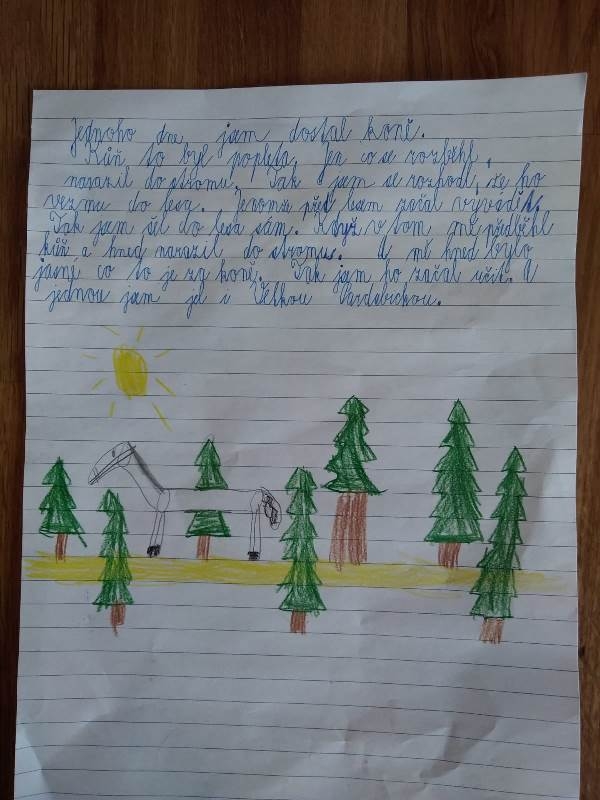 Jednoho dne jsem dostal koně.
Kůň to byl popleta. Jen co se rozběhl,
narazil do stromu. Tak jsem se rozhodl, že ho
vezmu do lesa. Jenomže před lesem začal vyvádět.
Tak jsem šel do lesa sám. Když v tom mě předběhl
kůň a hned narazil do stromu. A mě hned bylo
jasné co to je za koně. Tak jsem ho začal učit. A
jednou jsem jel i Velkou Pardubickou.